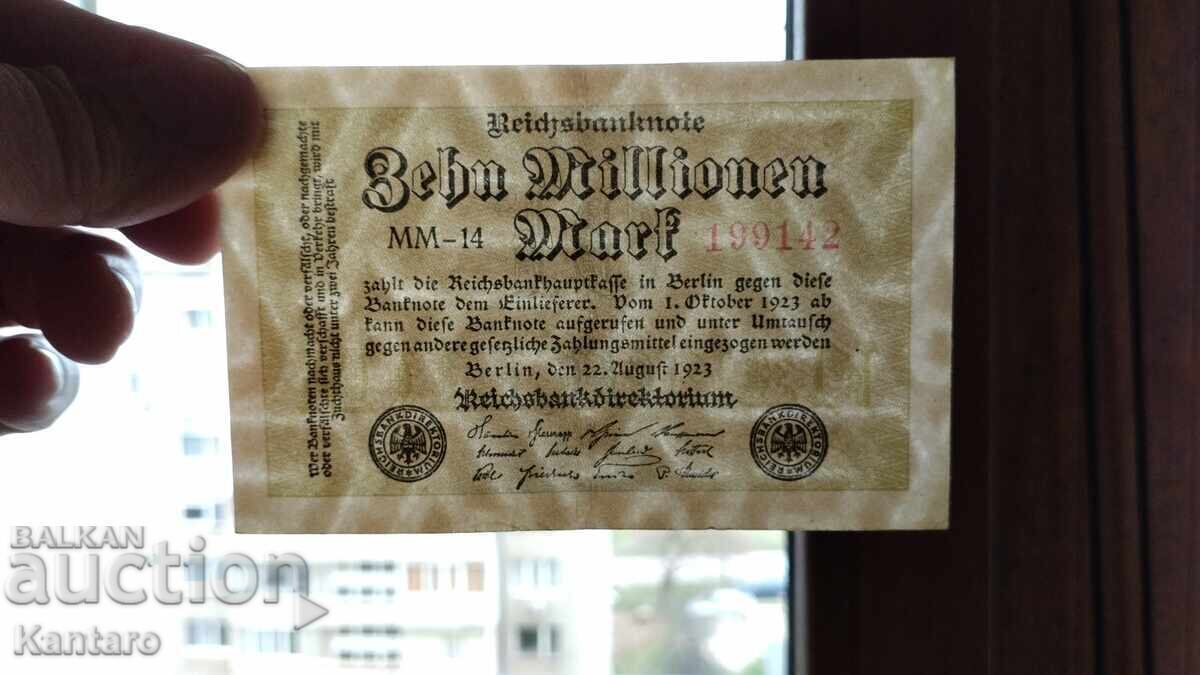 Reichsbanknote
Zehn Millionen
MM-14 Mark 199142
zahlt die Reichsbankhauptkasse in Berlin gegen diese
Banknote dem Einlieferer. Vom 1. Oktober 1923 ab
kann diese Banknote aufgerufen und unter Umtausch
gegen andere gesetzliche Zahlungsmittel eingezogen werden
Berlin, den 22. August 1923
Reichsbankdirektorium
REICHSBANKDIREKTORIUM
REICHSBANKDIREKTORIUM
Wer Banknoten nachmacht oder verfälscht, oder nachgemachte
oder verfälschte sich verschafft und in Verkehr bringt, wird mit
Zuchthaus nicht unter zwei Jahren bestraft
BALKAN
auction
Kantaro